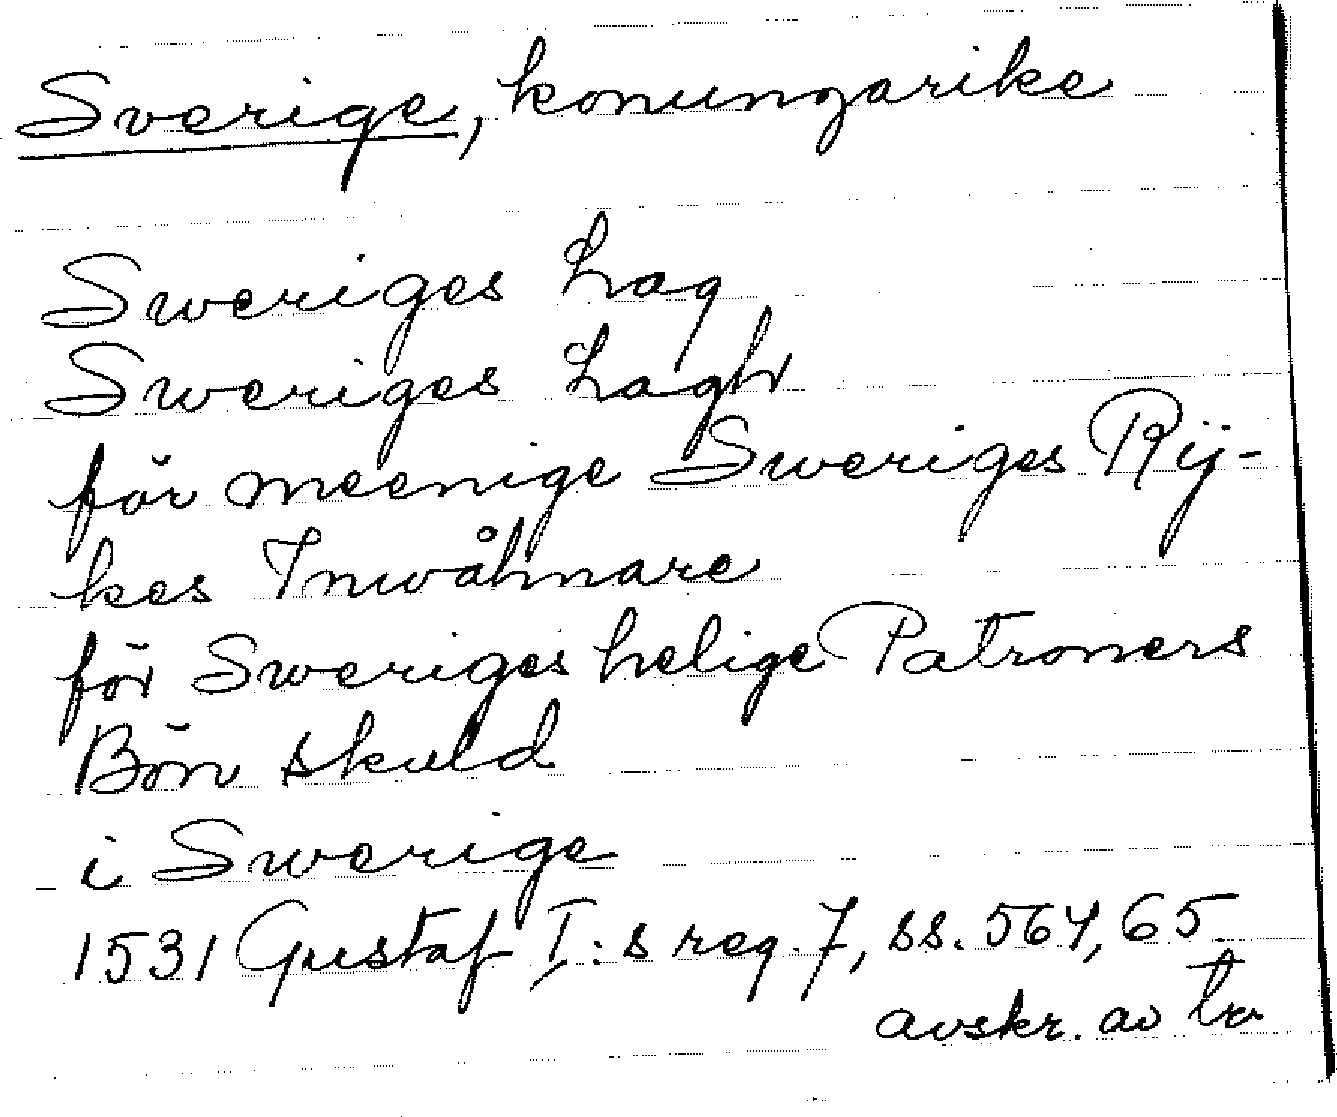 Sverige, konungarike
Sweriges Lag
Sweriges Lagh
för meenige Sweriges Rij-
kes Inwåhnare
för Sweriges helige Patroners
Bön skuld
i Swerige
1531 Gustaf I:s reg. 7, ss. 564, 65.
avskr. av